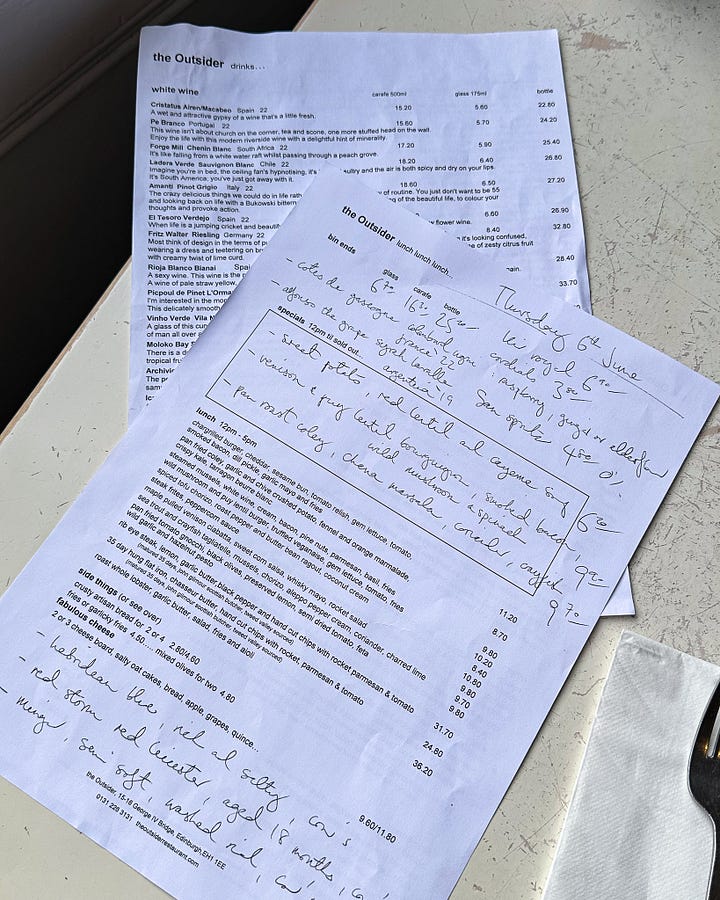 the Outsider drinks...
white wine carafe 500ml glass 175ml bottle
Cristatus Airen/Macabeo Spain 22 15.20 5.60 22.80
A wet and attractive gypsy of a wine that's a little fresh.
Pe Branco Portugal 22 15.60 5.70 24.20
This wine isn't about church on the corner, tea and scone, one more stuffed head on the wall.
Enjoy the life with this modern riverside wine with a delightful hint of minerality.
Forge Mill Chenin Blanc South Africa 22 17.20 5.90 25.40
It's like falling from a white water raft whilst passing through a peach grove.
Ladera Verde Sauvignon Blanc Chile 22 18.20 6.40 26.80
Imagine you're in bed, the ceiling fan's hypnotising, it's sultry and the air is both spicy and dry on your lips.
It's South America; you've just got away with it.
Amanti Pinot Grigio Italy 22 18.60 6.50 27.20
The crazy delicious things we could do in life rath of routine. You just don't want to be 55
and looking back on life with a Bukowski bittern g of the beautiful life, to colour your
thoughts and provoke action.
El Tesoro Verdejo Spain 22 6.60 26.90
When life is a jumping cricket and beautif flower wine.
Fritz Walter Riesling Germany 22 8.40 32.80
Most think of design in the terms of p it's looking confused,
wearing a dress and teetering on br e of zesty citrus fruit
with creamy twist of lime curd.
Rioja Blanco Bianai Spai 28.40
A sexy wine. This wine is the p
A wine of pale straw yellow,
Picpoul de Pinet L'Orma 33.70
I'm interested in the mo
This delicately smooth
Vinho Verde Vila N
A glass of this cup
of man all over
Moloko Bay S
There is a d
tropical fru
Archivio
The pe
same
the Outsider lunch lunch lunch...
Thursday 6th June
bin ends glass carafe bottle
- cotes de gascogne colombard ugni
france '22
argentina '19
specials 12pm til sold out..
- sweet potato, red lentil and cayenne soup
- venison & puy lentil bourguignon, smoked bacon,
wild mushroom
- pan roast coley, chana masala, coriander,
lunch 12pm - 5pm
chargrilled burger, cheddar, sesame bun, tomato relish, gem lettuce, tomato,
smoked bacon, dill pickle, garlic mayo and fries 11.20
pan fried coley, garlic and chive crushed potato, fennel and orange marmalade,
crispy kale, tarragon beurre blanc
steamed mussels, white wine, cream, bacon, pine nuts, parmesan, basil, fries
wild mushroom and puy lentil burger, truffled veganaise, gem lettuce, tomato, fries
spiced tofu chorizo, roast pepper and butter bean ragout, coconut cream 8.70
steak frites, peppercorn sauce 9.80
maple pulled venison ciabatta, sweet corn salsa, whisky mayo, rocket salad 10.20
sea trout and crayfish tagliatelle, mussels, chorizo, aleppo pepper, cream, coriander, charred lime 8.40
pan fried tomato gnocchi, black olives, preserved lemon, semi dried tomato, feta 10.80
wild garlic and hazelnut pesto 9.80
rib eye steak, lemon, garlic butter, black pepper and hand cut chips with rocket, parmesan & tomato 9.70
(matures 35 days, john gilmour scottish butcher, tweed valley sourced) 9.80
35 day hung flat iron, chasseur butter, hand cut chips with rocket, parmesan & tomato 31.70
(matures 35 days, john gilmour scottish butcher, tweed valley sourced)
roast whole lobster, garlic butter, salad, fries and aioli 24.80
36.20
side things (or see over)
crusty artisan bread for 2 or 4 2.80/4.60
fries or garlicky fries 4.50 .... mixed olives for two 4.80
fabulous cheese
2 or 3 cheese board, salty oat cakes, bread, apple, grapes, quince... 9.60/11.80
- hebridean blue, rich and salty, cow's
- red storm red leicester, aged 18 months,
semi soft, washed rind,
the Outsider, 15-16 George IV Bridge, Edinburgh EH1 1EE
0131 226 3131 theoutsiderrestaurant.com